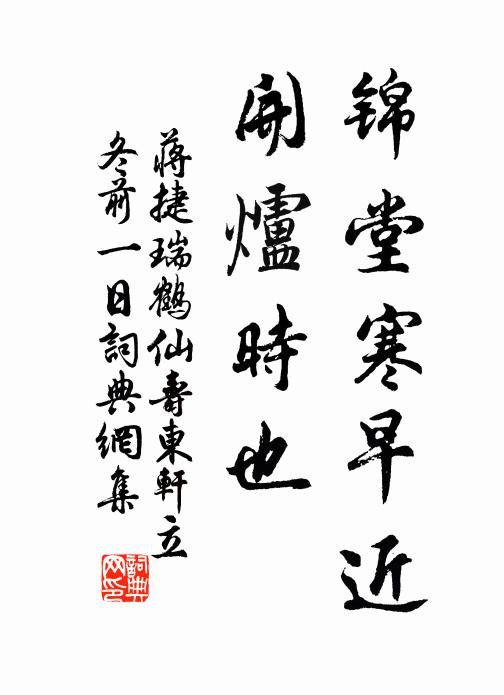 锦堂寒早近
開爐時也
蒋捷瑞鶴仙壽東軒立
冬前一日詞典網集
詞典
网印